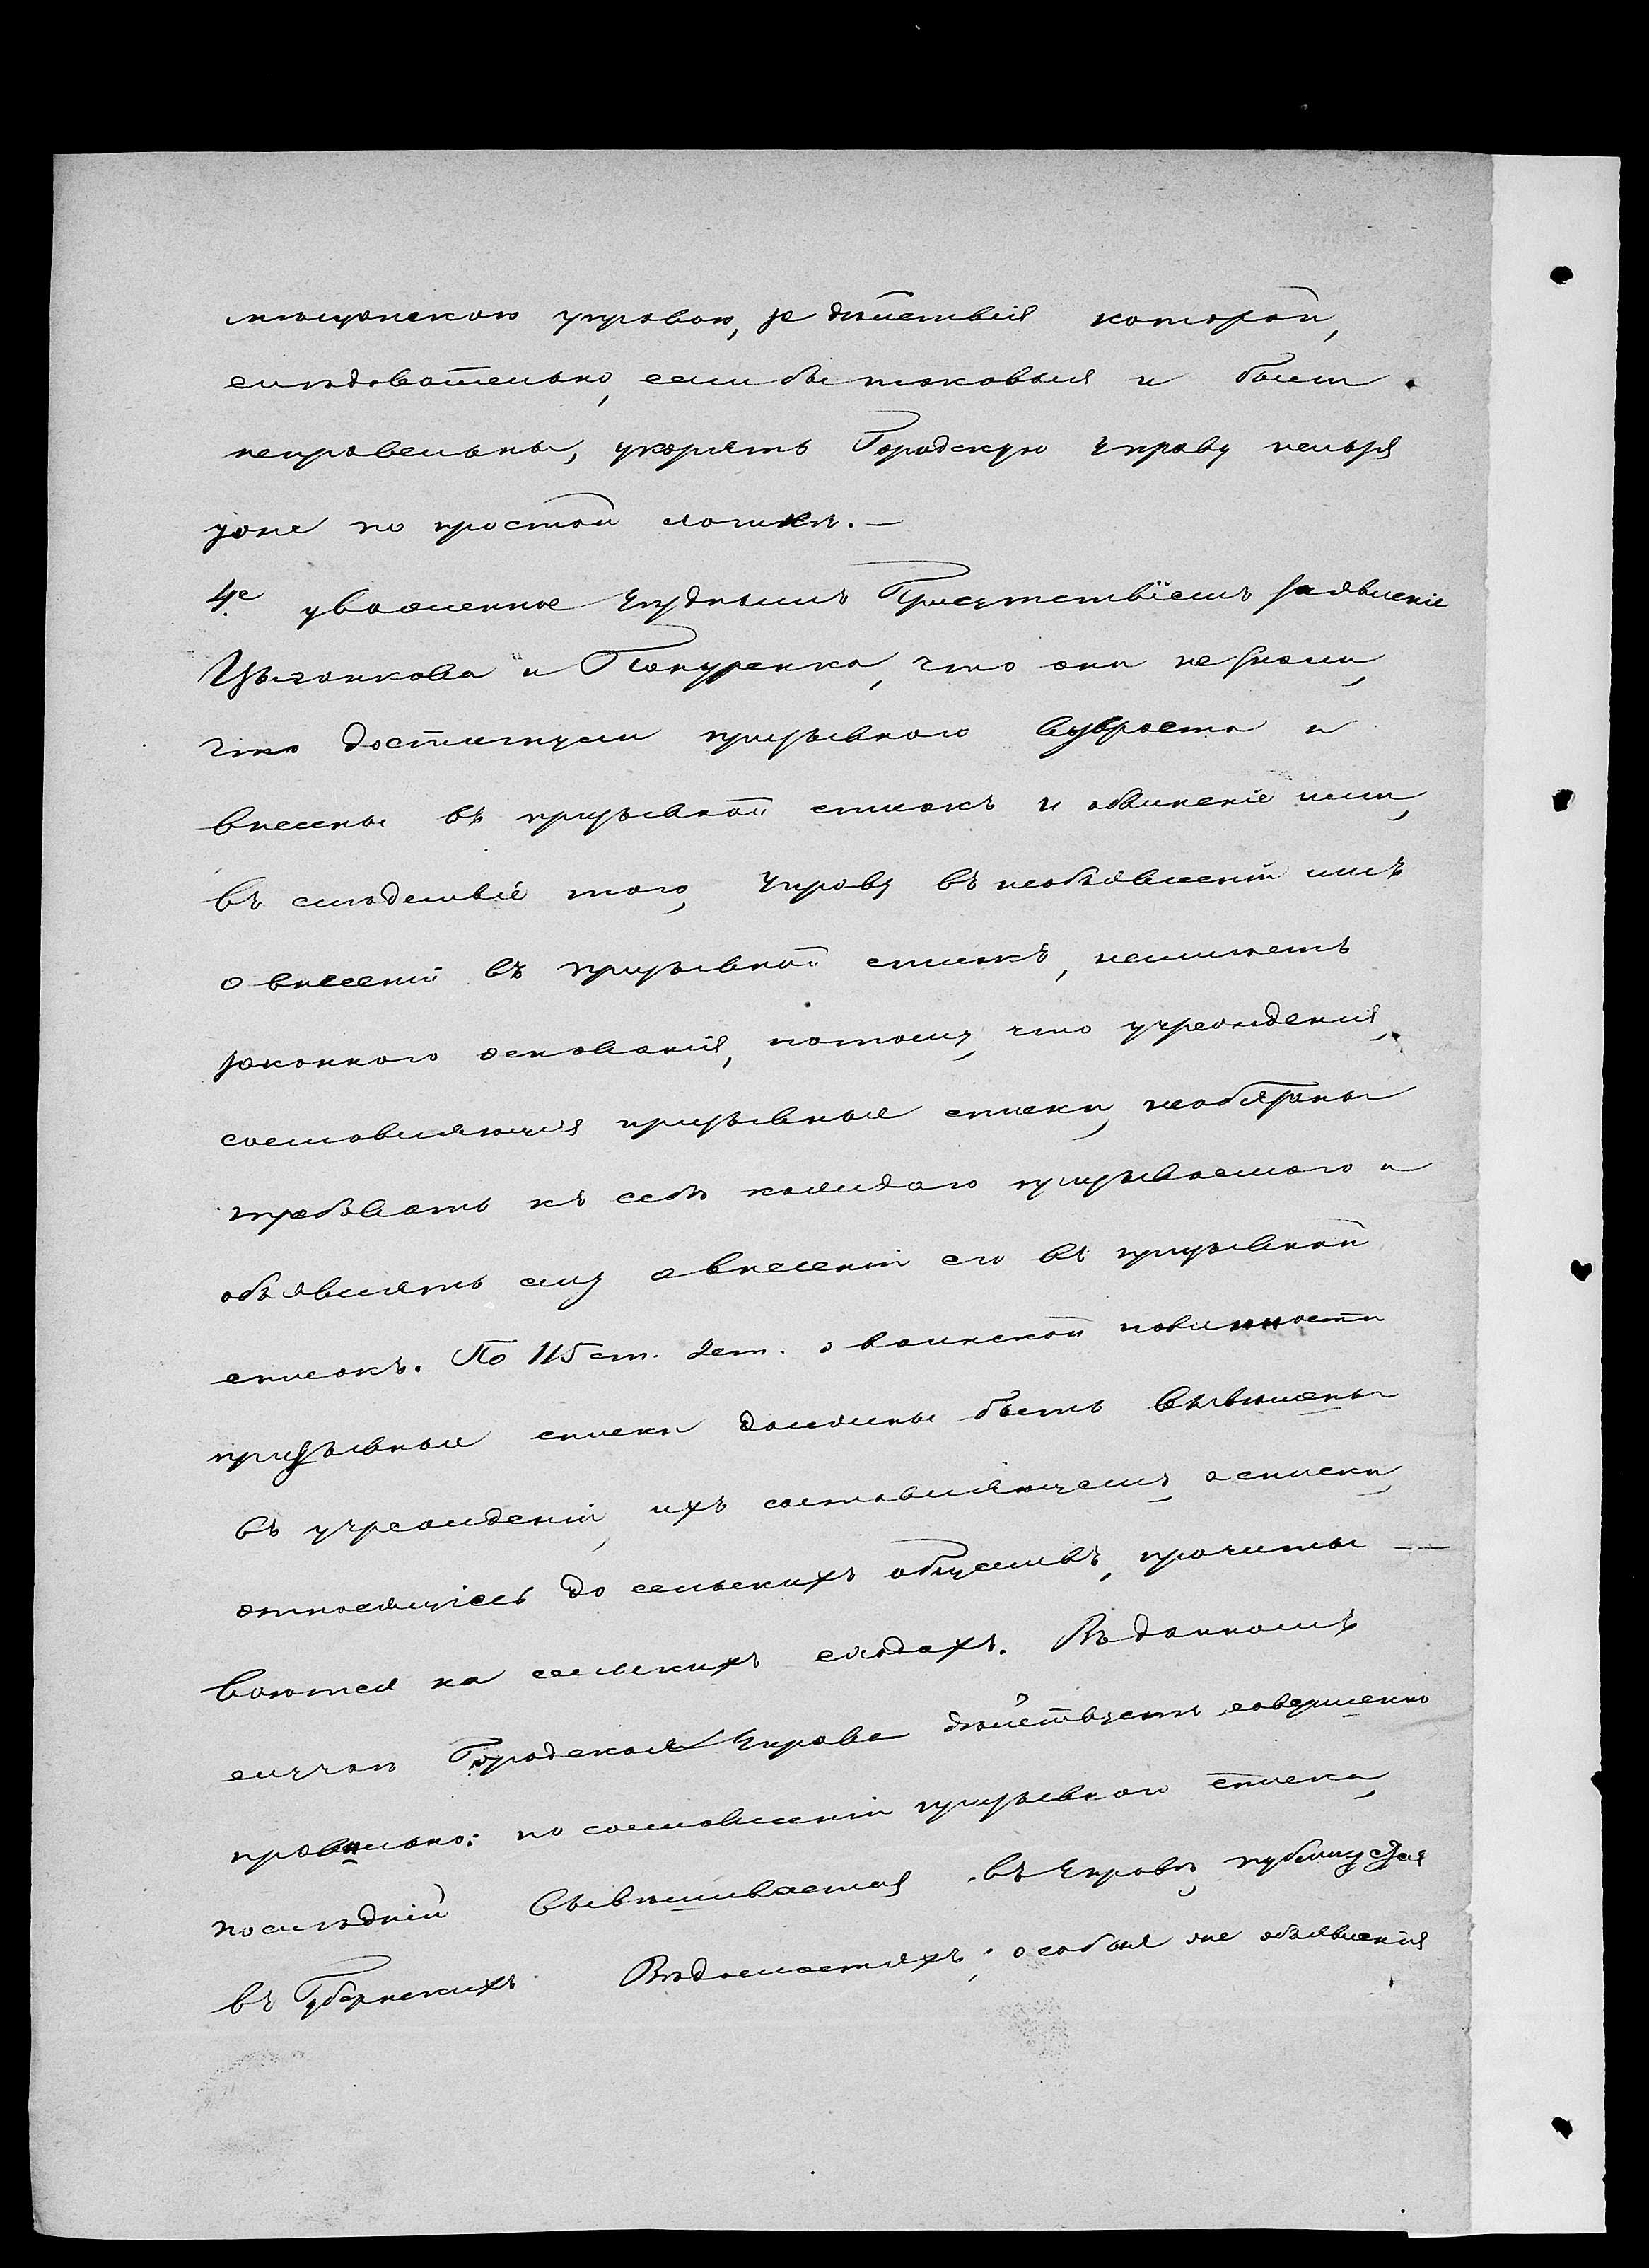 мѣщанскою управою, за дѣйствія которой,
слѣдовательно, если бы таковыя и были
неправельны, укорять Городскую Управу нельзя
даже по простой логикѣ.—
4е уваженное Уѣзднымъ Присутствіемъ заявленіе
Цыганкова и Пануренка, что они не знали,
что достигнули призывного возроста и
внесены въ призывной списокъ и обвиненіе ими,
въ слѣдствіе того, Управу въ необъявленіи имъ
о внесеніи въ призывной списокъ, неимѣетъ
законного основанія, потому, что учрежденія,
составляющія призывные списки, необязаны
требовать къ себѣ каждаго призываемого и
объявлять ему о внесеніи его въ призывной
списокъ. По 115 ст. Уст. о воинской повинности
призывные списки должны быть вывѣшены
въ учрежденіи, ихъ составляющемъ, а списки,
относящіесь до сельскихъ обществъ, прочиты—
ваются на сельскихъ сходахъ. Въ данномъ
случаѣ Городская Управа дѣйствуетъ совершенно
правильно: по составленіи призывного списка,
послѣдній вывѣшивается въ Управѣ, публикуется
въ Губернскихъ Вѣдомостяхъ; особыя же объявленія